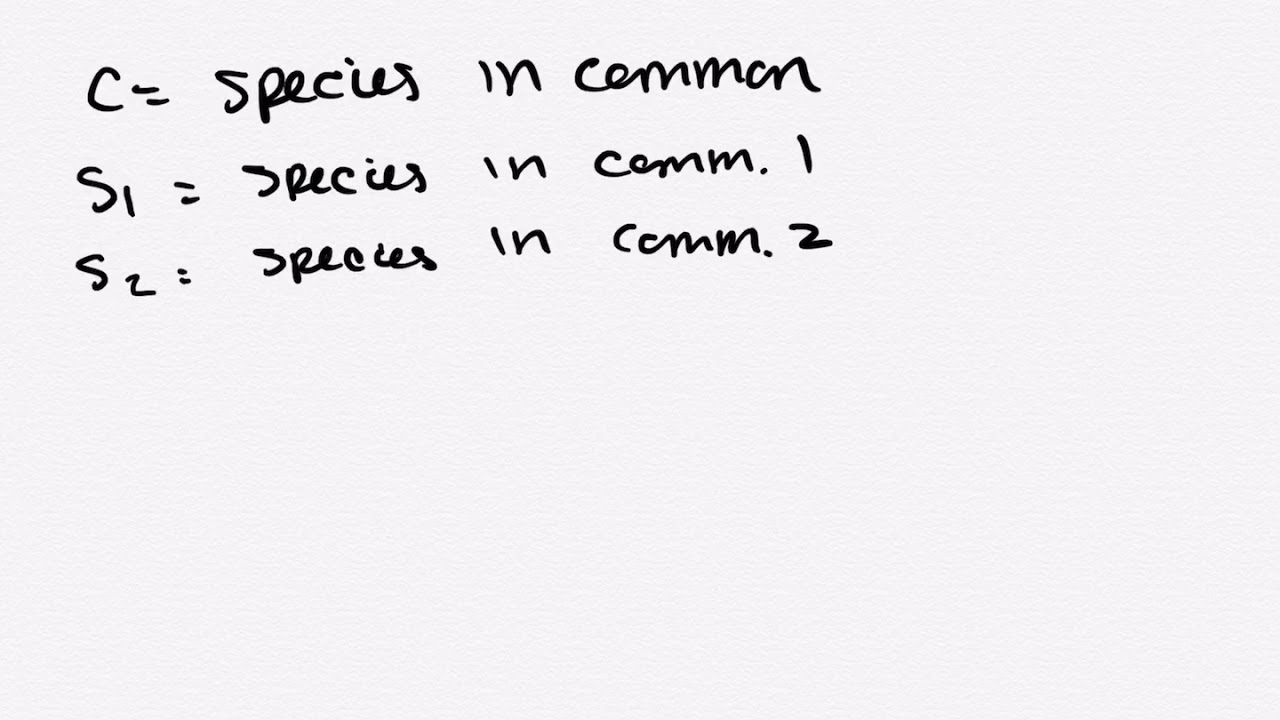 C= species in common
S1 = species in comm. 1
S2 = species in comm. 2